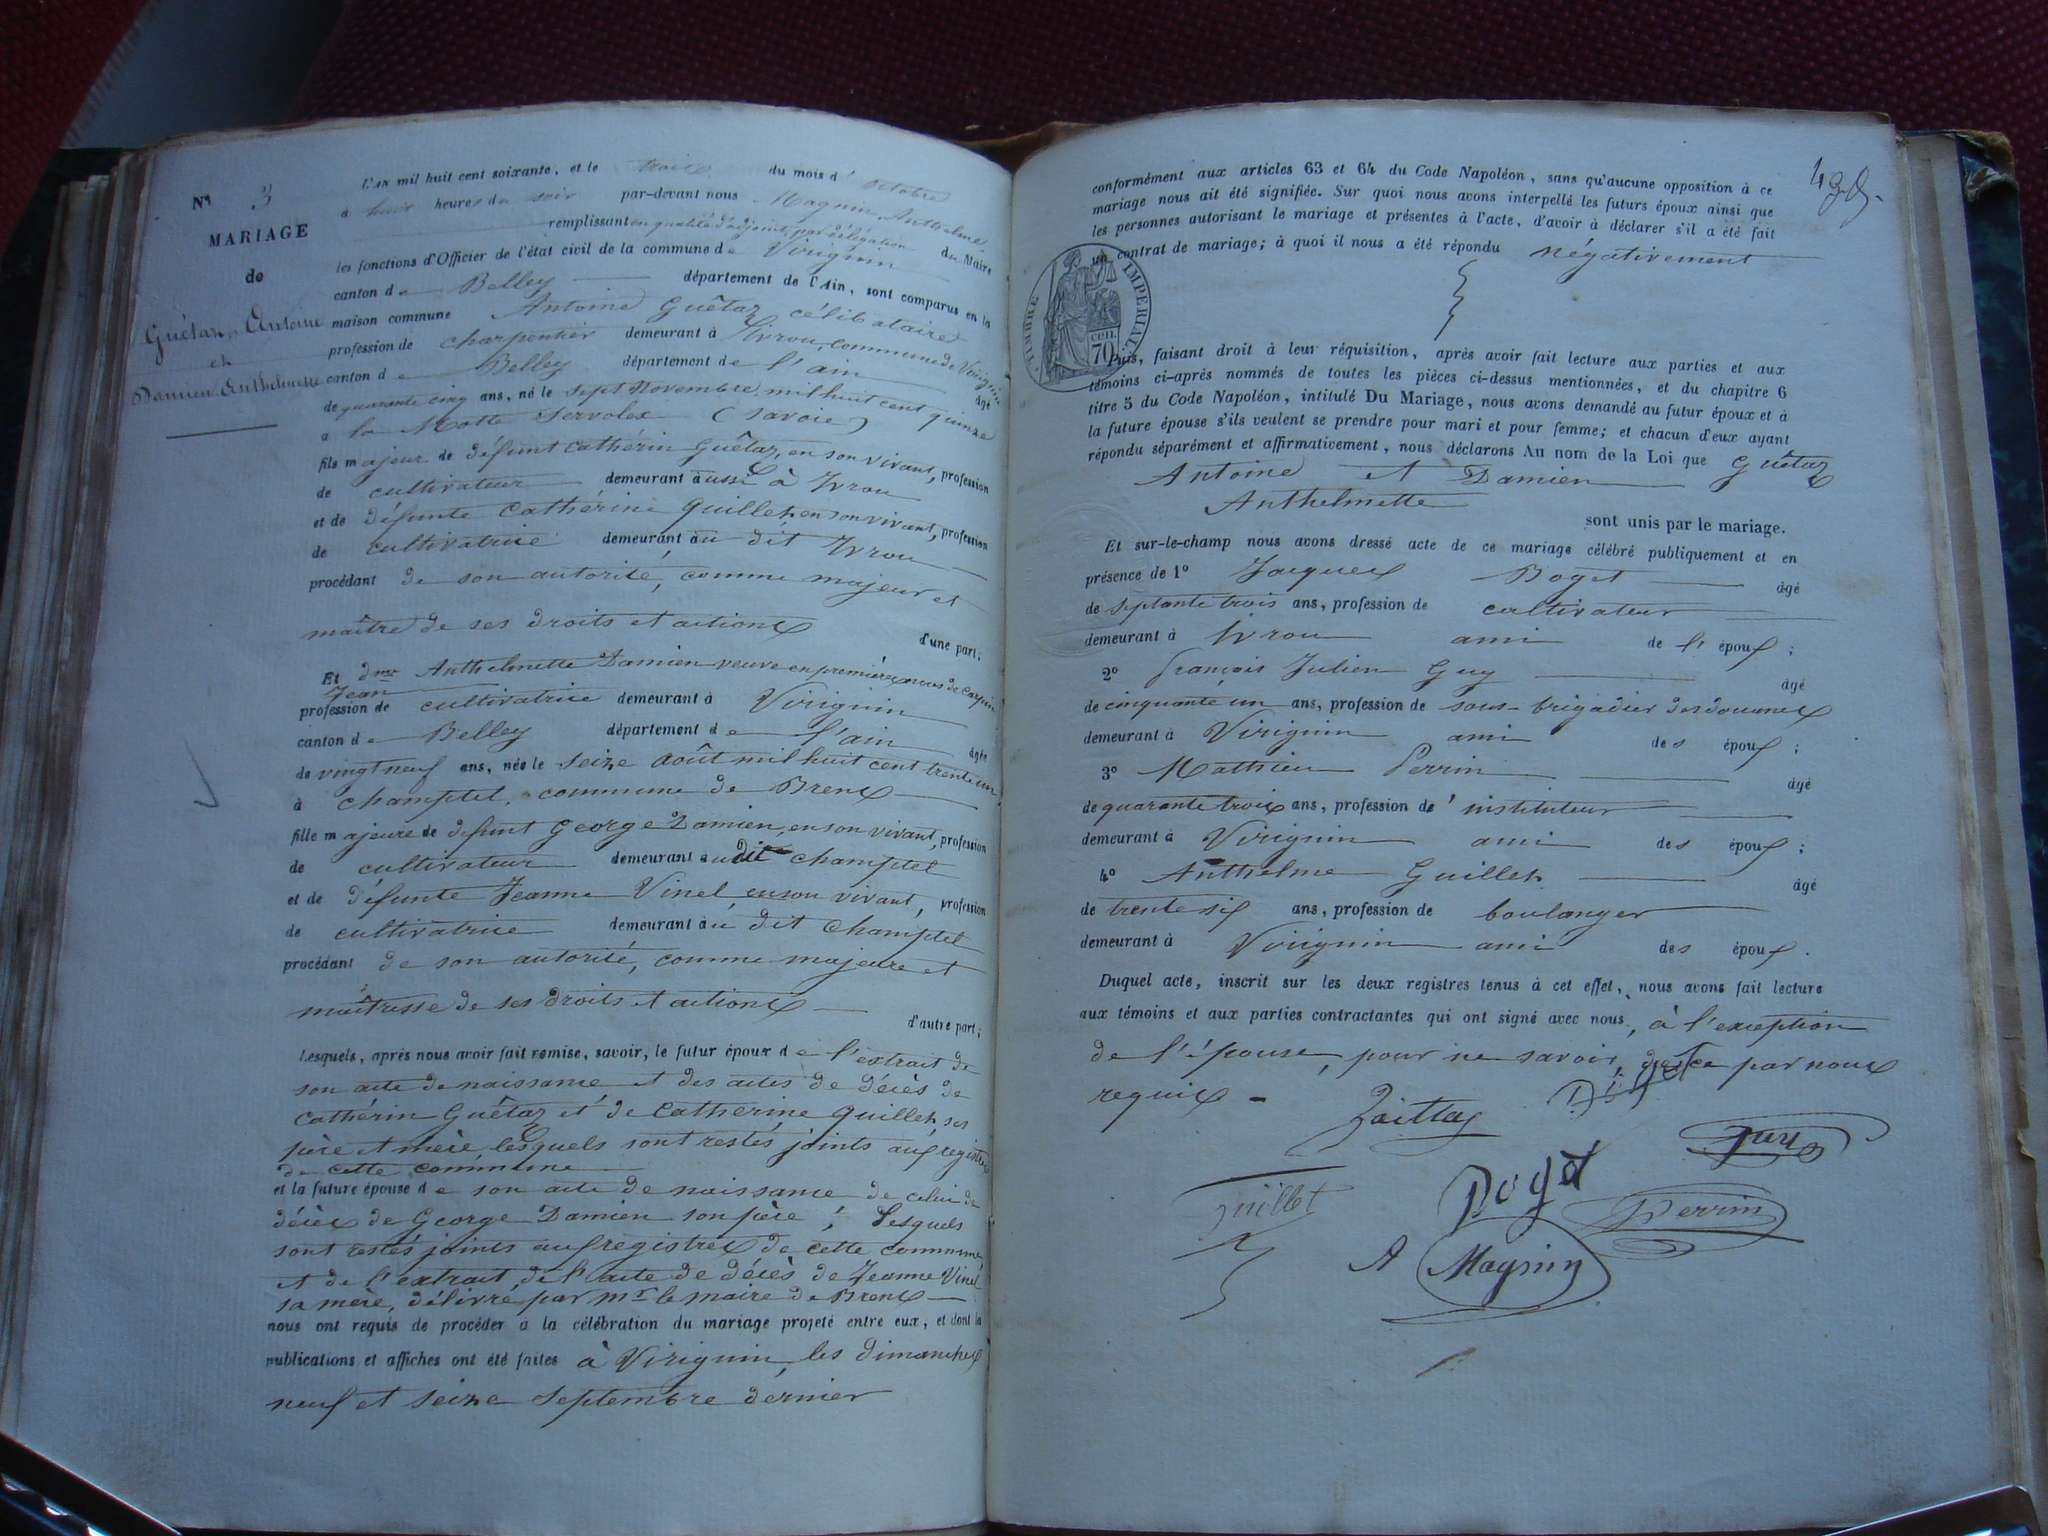 N° 3
MARIAGE
de
Guétaz, Antoine
et
Damien Anthelmette
L'AN mil huit cent soixante, et le trois du mois d'octobre
à huit heures du soir par-devant nous Magnin, Anthelme
remplissant en qualité d'adjoint, par délégation du Maire
les fonctions d'Officier de l'état civil de la commune de Virignin
canton de Belley département de l'Ain, sont comparus en la
maison commune Antoine Guêtaz célibataire
profession de charpentier demeurant à Yvrou, commune de Virignin
canton de Belley département de l'ain âgé
de quarante cinq ans, né le sept Novembre mil huit cent quinze
à la Motte Servolex (Savoie)
fils majeur de défunt Cathérin Guêtaz, en son vivant, profession
de cultivateur demeurant aussi à Yvrou
et de défunte Cathérine Guillet, en son vivant, profession
de cultivatrice demeurant au dit Yvrou
procédant de son autorité, comme majeur et
maître de ses droits et actions d'une part;
Et dme Anthelmette Damien veuve en premières noces de Carpin
Jean
profession de cultivatrice demeurant à Virignin
canton de Belley département de l'ain âgée
de vingt neuf ans, née le seize août mil huit cent trente un,
à Champtel, commune de Brens
fille majeure de défunt George Damien, en son vivant, profession
de cultivateur demeurant au dit Champtel
et de défunte Jeanne Vinel, en son vivant, profession
de cultivatrice demeurant au dit Champtel
procédant de son autorité, comme majeure et
maîtresse de ses droits et actions
d'autre part;
Lesquels, après nous avoir fait remise, savoir, le futur époux de l'extrait de
son acte de naissance et des actes de décès de
Cathérin Guêtaz et de Catherine Guillet, ses
père et mère, lesquels sont restés joints aux registres
de cette commune
et la future épouse de son acte de naissance de celui de
décès de George Damien son père; Lesquels
sont restés joints aux registres de cette commune
et de l'extrait de l'acte de décès de Jeanne Vinel
sa mère, délivré par Mr le maire de Brens
nous ont requis de procéder à la célébration du mariage projeté entre eux, et dont la
publications et affiches ont été faites à Virignin, les dimanches
neuf et seize septembre dernier
conformément aux articles 63 et 64 du Code Napoléon, sans qu'aucune opposition à ce
mariage nous ait été signifiée. Sur quoi nous avons interpellé les futurs époux ainsi que
les personnes autorisant le mariage et présentes à l'acte, d'avoir à déclarer s'il a été fait
un contrat de mariage; à quoi il nous a été répondu négativement
TIMBRE IMPERIAL
70 CEN.
Puis, faisant droit à leur réquisition, après avoir fait lecture aux parties et aux
témoins ci-après nommés de toutes les pièces ci-dessus mentionnées, et du chapitre 6
titre 5 du Code Napoléon, intitulé Du Mariage, nous avons demandé au futur époux et à
la future épouse s'ils veulent se prendre pour mari et pour femme; et chacun d'eux ayant
répondu séparément et affirmativement, nous déclarons Au nom de la Loi que Guêtaz
Antoine et Damien
Anthelmette
sont unis par le mariage.
Et sur-le-champ nous avons dressé acte de ce mariage célébré publiquement et en
présence de 1° Jacques Boget âgé
de septante trois ans, profession de cultivateur
demeurant à Yvrou ami de l'époux;
2° françois Julien Guy âgé
de cinquante un ans, profession de sous-brigadier des douanes
demeurant à Virignin ami des époux;
3° Mathieu Perrin âgé
de quarante trois ans, profession d'instituteur
demeurant à Virignin ami des époux;
4° Anthelme Guillet âgé
de trente six ans, profession de boulanger
demeurant à Virignin ami des époux.
Duquel acte, inscrit sur les deux registres tenus à cet effet, nous avons fait lecture
aux témoins et aux parties contractantes qui ont signé avec nous, à l'exception
de l'épouse, pour ne savoir, de ce par nous
requis -
Guy
Guillet Boget Perrin
A Magnin